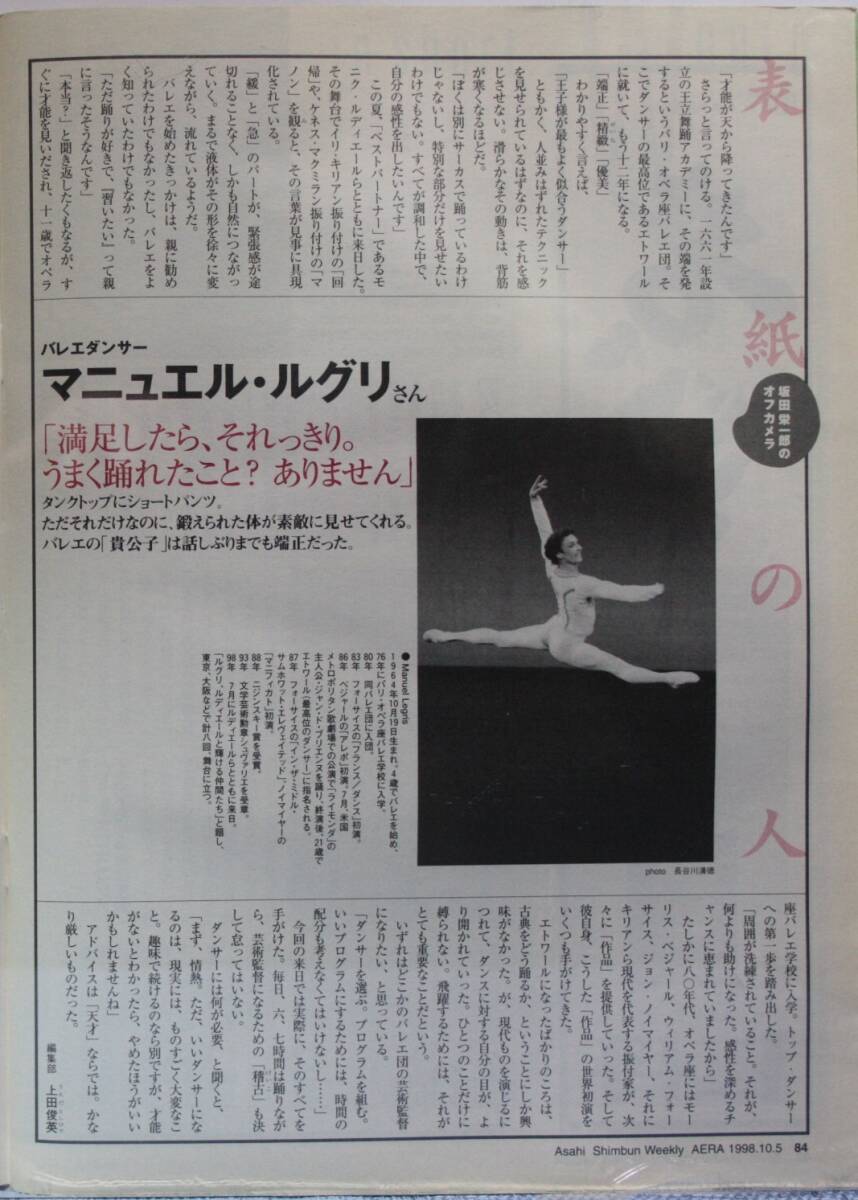 表紙の人
坂田栄一郎の
オフカメラ
「才能が天から降ってきたんです」
さらっと言ってのける。一六六一年設
立の王立舞踊アカデミーに、その端を発
するというパリ・オペラ座バレエ団。そ
こでダンサーの最高位であるエトワール
に就いて、もう十二年になる。
「端正」「精緻」「優美」
わかりやすく言えば、
「王子様が最もよく似合うダンサー」
ともかく、人並みはずれたテクニック
を見せられているはずなのに、それを感
じさせない。滑らかなその動きは、背筋
が寒くなるほどだ。
「ぼくは別にサーカスで踊っているわけ
じゃないし、特別な部分だけを見せたい
わけでもない。すべてが調和した中で、
自分の感性を出したいんです」
この夏、「ベストパートナー」であるモ
ニク・ルディエールらとともに来日した。
その舞台でイリ・キリアン振り付けの「回
帰」や、ケネス・マクミラン振り付けの「マ
ノン」を観ると、その言葉が見事に具現
化されている。
「緩」と「急」のパートが、緊張感が途
切れることなく、しかも自然につながっ
ていく。まるで液体がその形を徐々に変
えながら、流れているようだ。
バレエを始めたきっかけは、親に勧め
られたわけでもなかったし、バレエをよ
く知っていたわけでもなかった。
「ただ踊りが好きで、『習いたい』って親
に言ったそうなんです」
「本当?」と聞き返したくもなるが、す
ぐに才能を見いだされ、十一歳でオペラ
バレエダンサー
マニュエル・ルグリさん
「満足したら、それっきり。
うまく踊れたこと? ありません」
タンクトップにショートパンツ。
ただそれだけなのに、鍛えられた体が素敵に見せてくれる。
バレエの「貴公子」は話しぶりまでも端正だった。
● Manuel Legris
1964年10月19日生まれ。4歳でバレエを始め、
76年にパリ・オペラ座バレエ学校に入学。
80年 同バレエ団に入団。
83年 フォーサイスの「フランス/ダンス」初演。
86年 ベジャールの「アレポ」初演。7月、米国
メトロポリタン歌劇場での公演で「ライモンダ」の
主人公・ジャン・ド・ブリエンヌを踊り、終演後、21歳で
エトワール(最高位のダンサー)に指名される。
87年 フォーサイスの「イン・ザ・ミドル・
サムホワット・エレヴェイテッド」、ノイマイヤーの
「マニフィカト」初演。
88年 ニジンスキー賞を受賞。
93年 文学芸術勲章シュヴァリエを受章。
98年 7月にルディエールらとともに来日。
「ルグリ、ルディエールと輝ける仲間たち」と題し、
東京、大阪などで計八回、舞台に立つ。
photo 長谷川清徳
座バレエ学校に入学。トップ・ダンサー
への第一歩を踏み出した。
「周囲が洗練されていること。それが、
何よりも助けになった。感性を深めるチ
ャンスに恵まれていましたから」
たしかに八〇年代、オペラ座にはモー
リス・ベジャール、ウィリアム・フォー
サイス、ジョン・ノイマイヤー、それに
キリアンら現代を代表する振付家が、次
々に「作品」を提供していった。そして
彼自身、こうした「作品」の世界初演を
いくつも手がけてきた。
エトワールになったばかりのころは、
古典をどう踊るか、ということにしか興
味がなかった。が、現代ものを演じるに
つれて、ダンスに対する自分の目が、よ
り開かれていった。ひとつのことだけに
縛られない。飛躍するためには、それが
とても重要なことだという。
いずれはどこかのバレエ団の芸術監督
になりたい、と思っている。
「ダンサーを選ぶ。プログラムを組む。
いいプログラムにするためには、時間の
配分も考えなくてはいけないし……」
今回の来日では実際に、そのすべてを
手がけた。毎日、六、七時間は踊りなが
ら、芸術監督になるための「稽古」も決
して怠ってはいない。
ダンサーには何が必要、と聞くと、
「まず、情熱。ただ、いいダンサーにな
るのは、現実には、ものすごく大変なこ
と。趣味で続けるのなら別ですが、才能
がないとわかったら、やめたほうがいい
かもしれませんね」
アドバイスは「天才」ならでは。かな
り厳しいものだった。
編集部 上田俊英
Asahi Shimbun Weekly AERA 1998.10.5 84